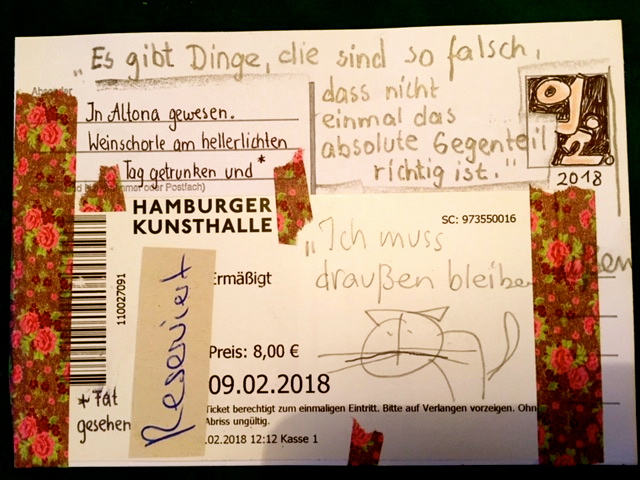 „Es gibt Dinge, die sind so falsch,
dass nicht
einmal das
absolute Gegenteil
richtig ist."
2018
Absender
In Altona gewesen.
Weinschorle am hellerlichten
Tag getrunken und *
oder Postfach)
HAMBURGER
KUNSTHALLE
SC: 973550016
„Ich muss
draußen bleiben
110027091
Ermäßigt
Reserviert
Preis: 8,00 €
09.02.2018
Ticket berechtigt zum einmaligen Eintritt. Bitte auf Verlangen vorzeigen. Ohn
Abriss ungültig.
.02.2018 12:12 Kasse 1
* Tat
gesehen